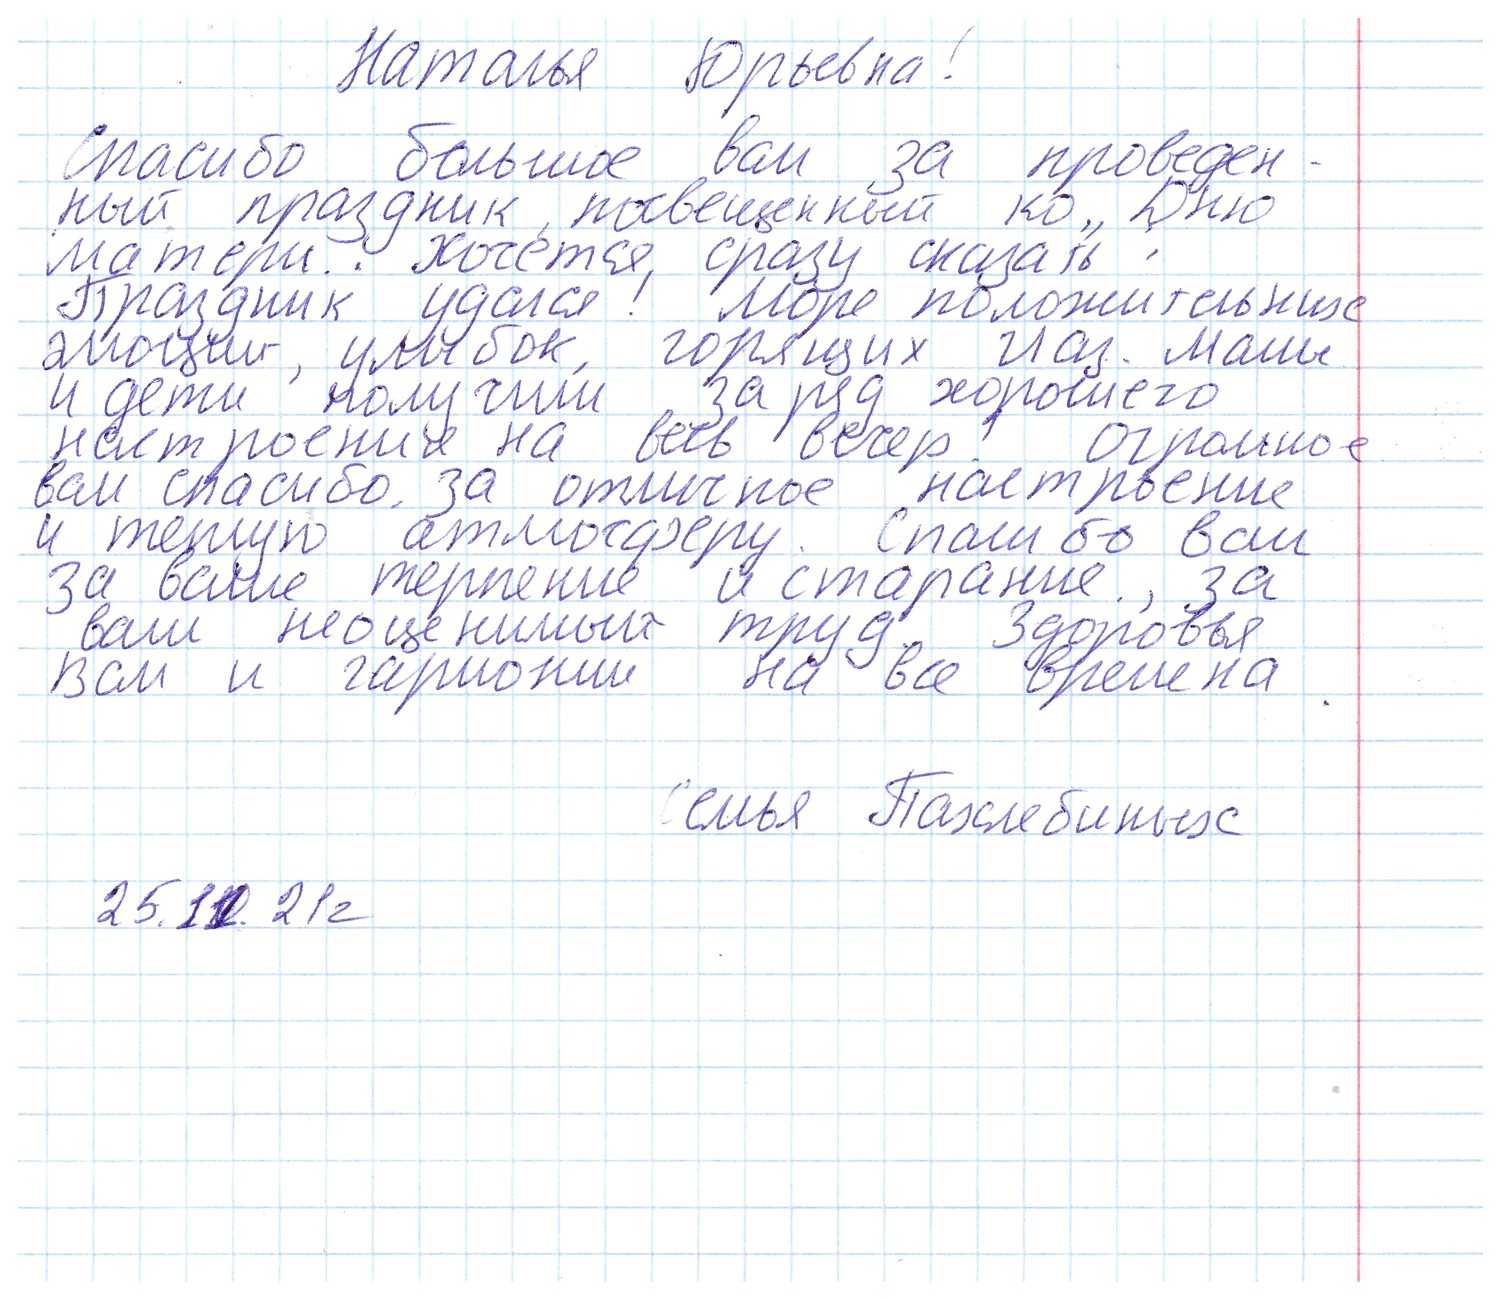 Наталья Юрьевна!
Спасибо большое вам за проведен-
ный праздник, посвещенный ко „Дню
матери". Хочется, сразу сказать :
Праздник удался! Море положительных
эмоций, улыбок, горящих глаз. Мамы
и дети получили заряд хорошего
настроения на весь вечер! Огромное
вам спасибо, за отличное настроение
и теплую атмосферу. Спасибо вам
за ваше терпение и старание, за
ваш неоценимый труд. Здоровья
Вам и гармонии на все времена.
Семья Пахлебиных
25.11.21г